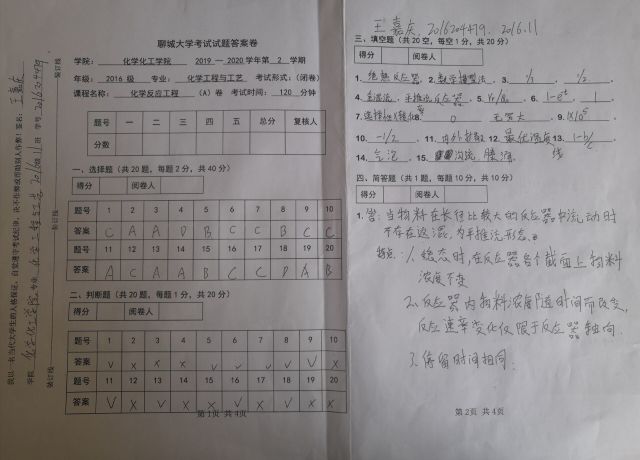 聊城大学考试试题答案卷
学院： 化学化工学院 2019 — 2020 学年第 2 学期
年级： 2016 级 专业： 化学工程与工艺 考试形式：(闭卷)
课程名称： 化学反应工程 (A) 卷 考试时间： 120 分钟
题号 一 二 三 四 五 总分 复核人
分数
一、选择题（共 20 题，每题 2 分，共 40 分）
得分 阅卷人
题号 1 2 3 4 5 6 7 8 9 10
答案 C A A D B C C B C C
题号 11 12 13 14 15 16 17 18 19 20
答案 A C A A B C C D A B
二、判断题（共 20 题，每题 1 分，共 20 分）
得分 阅卷人
题号 1 2 3 4 5 6 7 8 9 10
答案 √ × × × √ √ √ √ √ ×
题号 11 12 13 14 15 16 17 18 19 20
答案 √ × √ × √ × √ × √ ×
第 1页 共 4页
装订线
装订线
装订线
我以一名当代大学生的人格保证，自觉遵守考试纪律，决不作弊或帮助别人作弊！签名：王嘉庆
学院 化学化工学院 专业 化学工程与工艺 2016级 11班 学号 2016204479
王嘉庆 2016204479. 2016.11
三、填空题（共 20 空，每空 1 分，共 20 分）
得分 阅卷人
1. 绝热反应器 2. 数学模型法 3.
4. 全混流，平推流反应器 5. 6. 1
7. 8. 0 无穷大 9.
10. -1/2 11. 内外扩散 12. 最优温度 13.
14. 气泡 15. 沟流
四、简答题（共 1 题，每题 10 分，共 10 分）
得分 阅卷人
1. 答：当物料在长径比较大的反应器中流动时
不存在返混，为平推流形态。
特点：1. 稳态时，在反应器各个截面上物料
浓度不变
2. 反应器内物料浓度随时间而改变，
反应速率变化仅限于反应器轴向.
3. 停留时间相同.
第 2页 共 4页